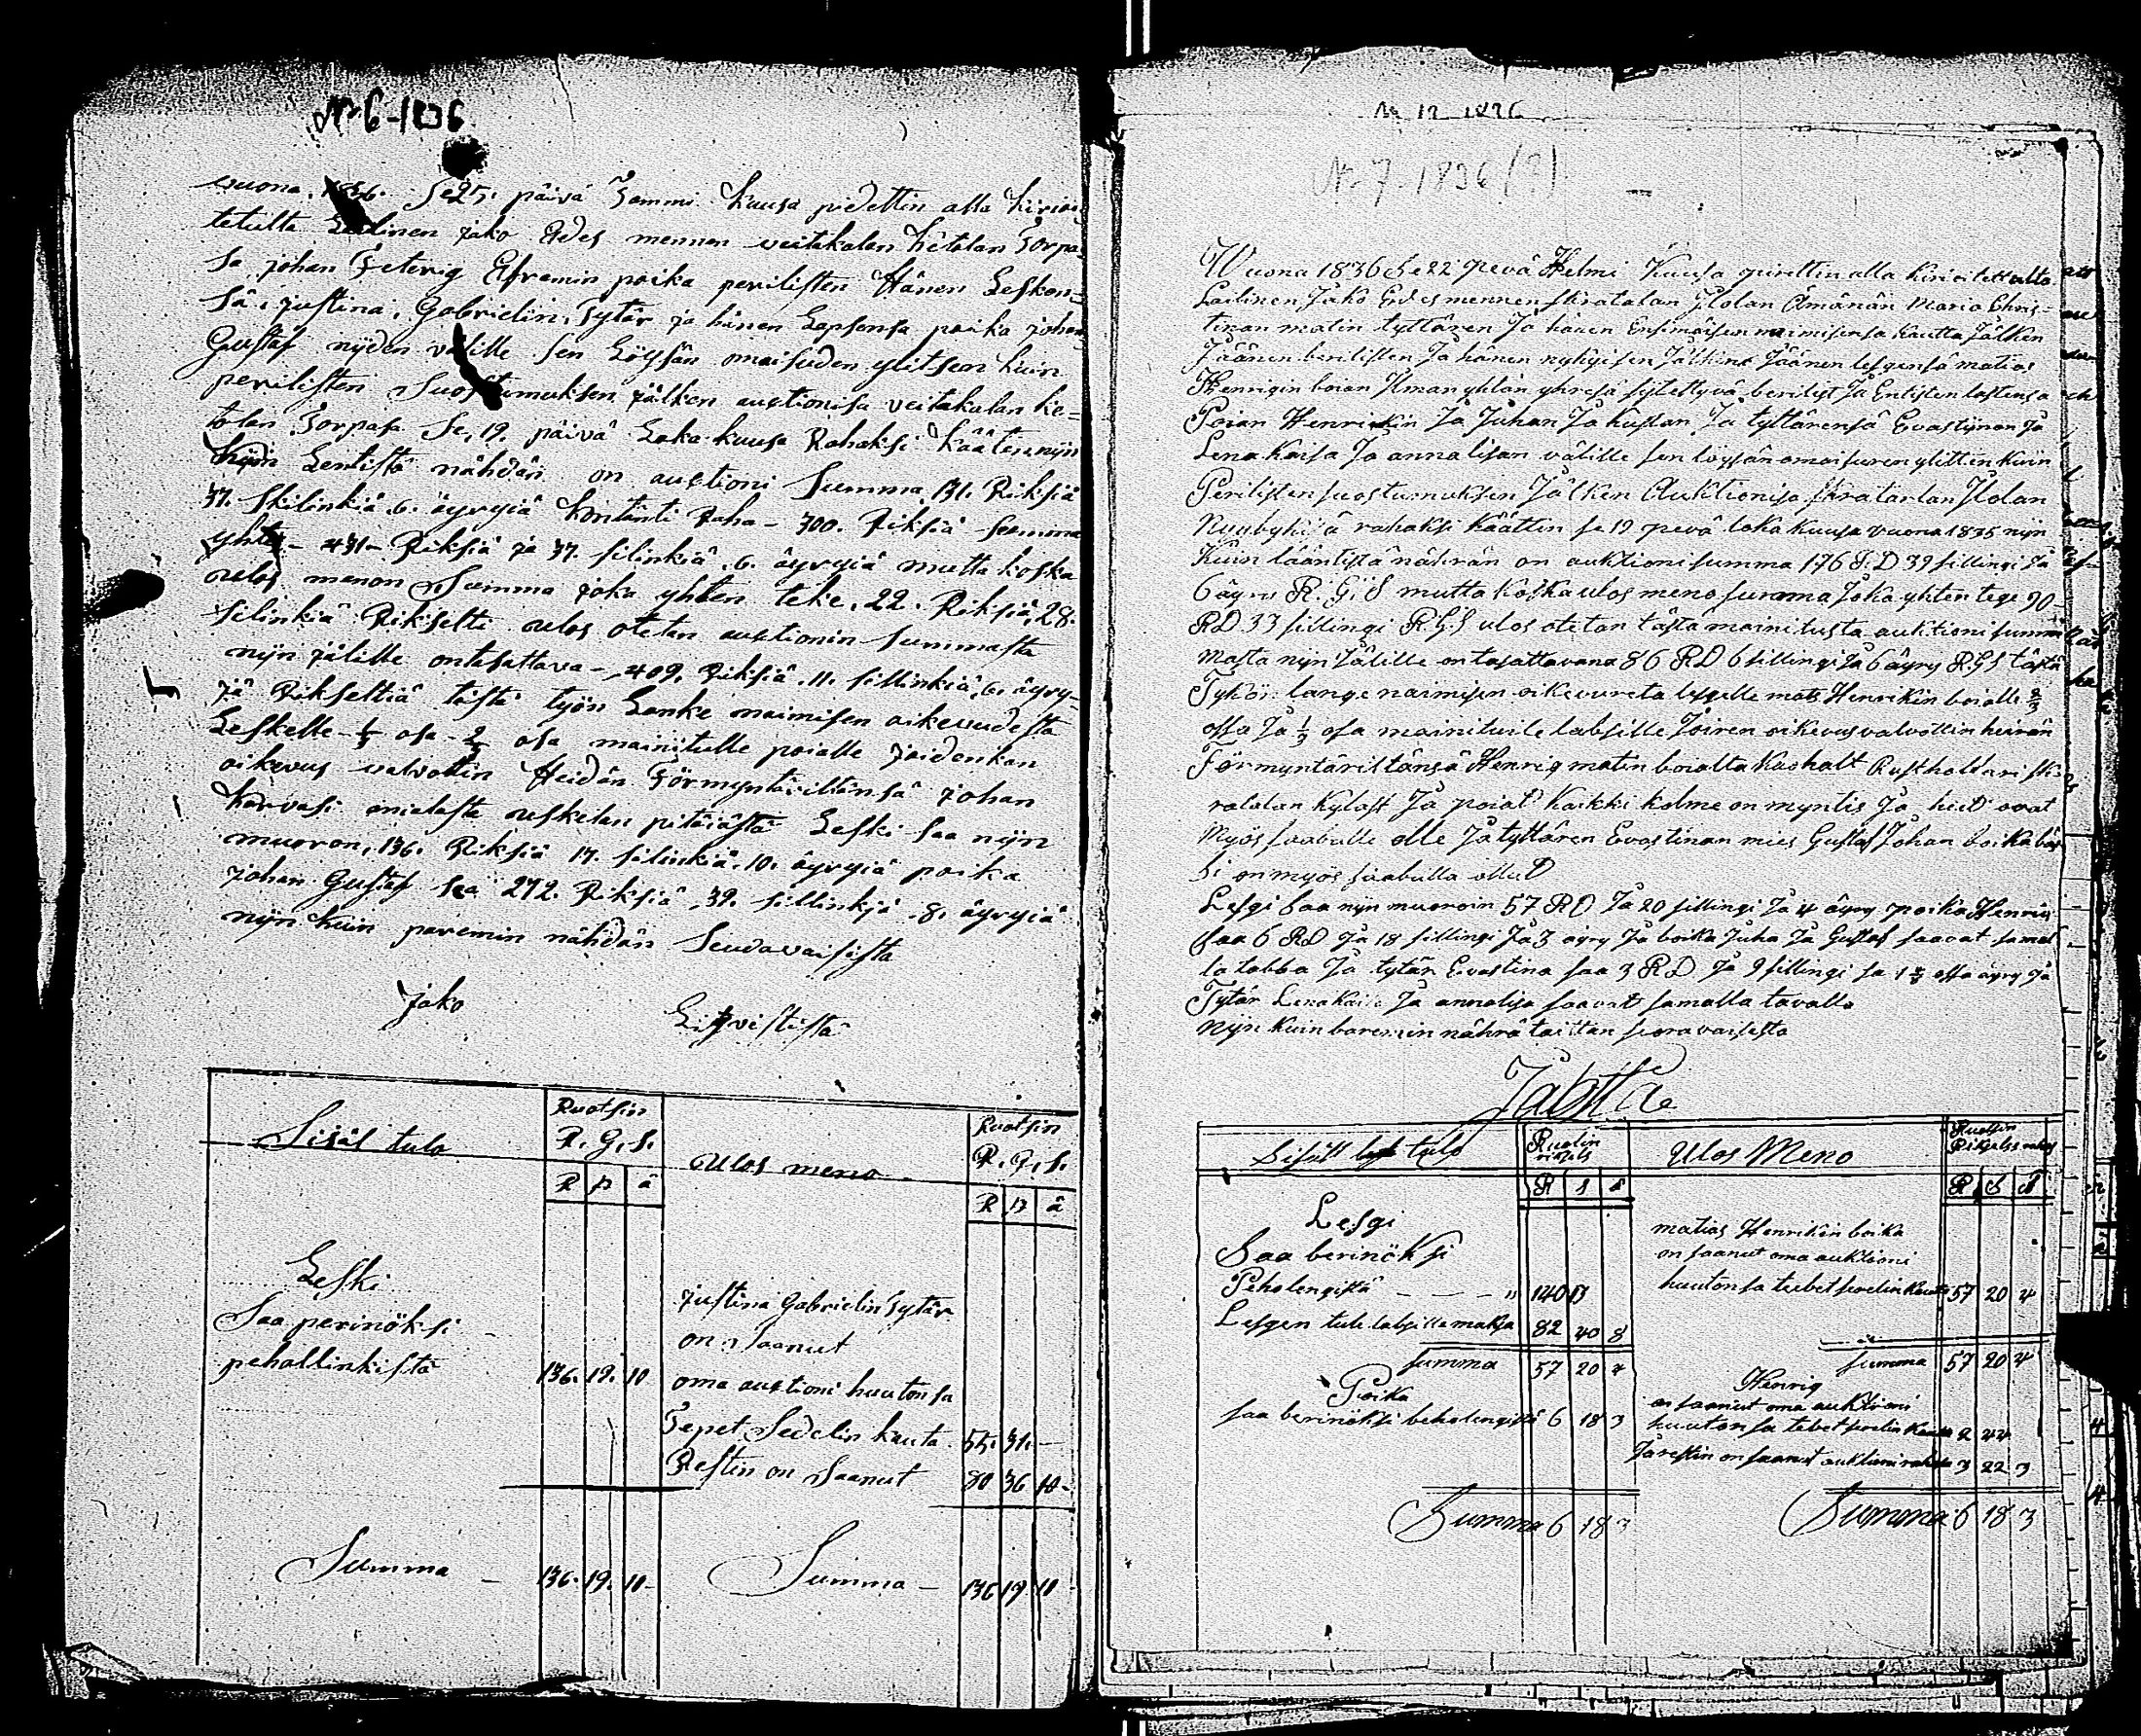 Nr 6-1836
vuona. 1836. Se 25. päivä Tammi Kuusa pidettin alla kirioi-
tetulta Lailinen jako Edes mennen veitakalan Ketolan Torpa-
sa, johan Feterig Efraimin poika perilisten Hänen Leskon-
sä, justina. Gabrielin. Tytär ja hänen Lapsensa poika johan
Gustaf nijden välille sen Löysän omaisuden ylitsen kuin
perilisten Suostumuksen jälken auctionisa veitakalan ke-
tolan Torpasa Se. 19. päivä Loka-kuusa Rahaksi käätin. nijn
Kuin Lentistä nähdän on auctioni Summa. 131. Riksiä
37. skilinkiä. 6. äyryiä kontanti Raha - 300. Riksiä Summa
yhte - 431 - Riksiä ja 37. silinkiä. 6. äyryiä mutta koska
ulos menon Summa joka yhten teke. 22. Riksiä, 28.
silinkiä Riksiltti ulos otetan auctionin summasta
nijn jälille on tasattava - 409. Riksiä. 11. sillinkiä, 6. äyry-
jä Rikseltiä tästä työn Lanke naimisen oikeuudesta
Leskelle - 1/3 osa - 2/3 osa mainitulle poialle joidenkan
oikeuus valvottin Heidän Förmyntäriltänsä johan
Karvasi anialasta uskelan pitäiästä Leski saa nijn
muoron, 136. Riksiä 17. silinkiä. 10. äyryiä poika
johan Gustaf saa 272. Riksiä, 39. sillinkjä. 8. äyryiä
nijn kuin paremin nähdän Seudavaisista
jako Litvististä
Sisäl tulo Ruotsin R. G. S. Ulos meno Ruotsin R. G. S.
R ä R ä
Leski
Saa perinöksi
pehallinkistä 136. 19. 10
justina Gabrielin Tytär
on Saanut
oma auctioni huutonsa
Tepet Sedelin kauta 55. 31. -
Restin on Saanut 80 36 10 -
Summa - 136. 19. 10 - Summa - 136 19 10 -
Nr 12 1836
Nr 7-1836 (?)
Wuona 1836 Se 22 pevä Helmi Kuusa pirettin alla kirioitettulta
Lailinen Jako Edes mennen Skratalan Jlolan Ämänän Maria Chris-
tinan matin tyttären Ja hänen Ensimäisen naimisensa kautta Jälken
Jäänen berilisten Ja hänen nykyisen Jälkens Jäänen lesgensä matias
Henrigin boian Ilman yhtän yhresä syietettyvä berilist Ja Entisten lastensa
Poian Henrikin Ja Juhan Ja Kustan Ja tyttärensä Evastijnan Ja
Lena Kaisa Ja annalisan välille sen löysän omaisuren ylitten kuin
Perilisten suostumuksen Jälken Auktionisa Skratarlan Jlolan
rahaksi käättin se 19 pevä loka kuusa vuona 1835 nijn
Kuin lääntistä nährän on auktioni summa 176 R.D 39 sillingi Ja
6 äyris R. G. S mutta koska ulos meno summa Joka yhten tege 90
RD 33 sillingi R.G.S ulos otetan tästä mainitusta auktioni summ
masta nijn Jälille on tasattavana 86 RD 6 sillingi Ja 6 äyry RGS tästä
Tykön lange naimisen oikeuureta lesgelle mats Henrikin boialle 2/3
ossa Ja 1/3 osa mainituile labsille Joiren oikeuus valvottin heirän
Förmyntäriltänsä Henrig matin boialta Kaohalt Rusthollari sk
ralalan Kyläst Ja poiat Kaikki kolme on myntis Ja hiet ovat
Myös saabulle olle Ja tyttären Evastinan mies Gustaf Johan boika
si on myös saabulla ollut
Lesgi saa nijn muoroin 57 RD Ja 20 sillingi Ja 4 äyry poika Henrig
saa 6 RD Ja 18 sillingi Ja 3 äyry Ja boika Juha Ja Gustaf saavat samal
la tabba Ja tytär Evastina saa 3 RD Ja 9 sillingi Ja 1 1/2 ossa äyry Ja
Tytär Lenakaisa Ja annalisa saavat samalla tavalla
Nijn kuin baremin nährä taittan seoravaisesta
Sisäll tulo Ruotin riksels Ulos Meno Ruotsin
R S R S
Lesgi
Saa berinöksi
Peholengistä - - - " 140 13
Lesgen tule labsille maksa 82 40 8
summa 57 20 4
Poika
saa berinöksi beholengistä 6 18 3
Summa 6 18 3
matias Henrikin boika
on saanut oma auktioni
huutonsa teebet seelin kautta 57 20 4
summa 57 20 4
Henrig
on saanut oma auktioni
huutonsa tebet seelin kautta 2 44
Ja restin on saanut auktioni rahasa 3 22 3
Summa 6 18 3